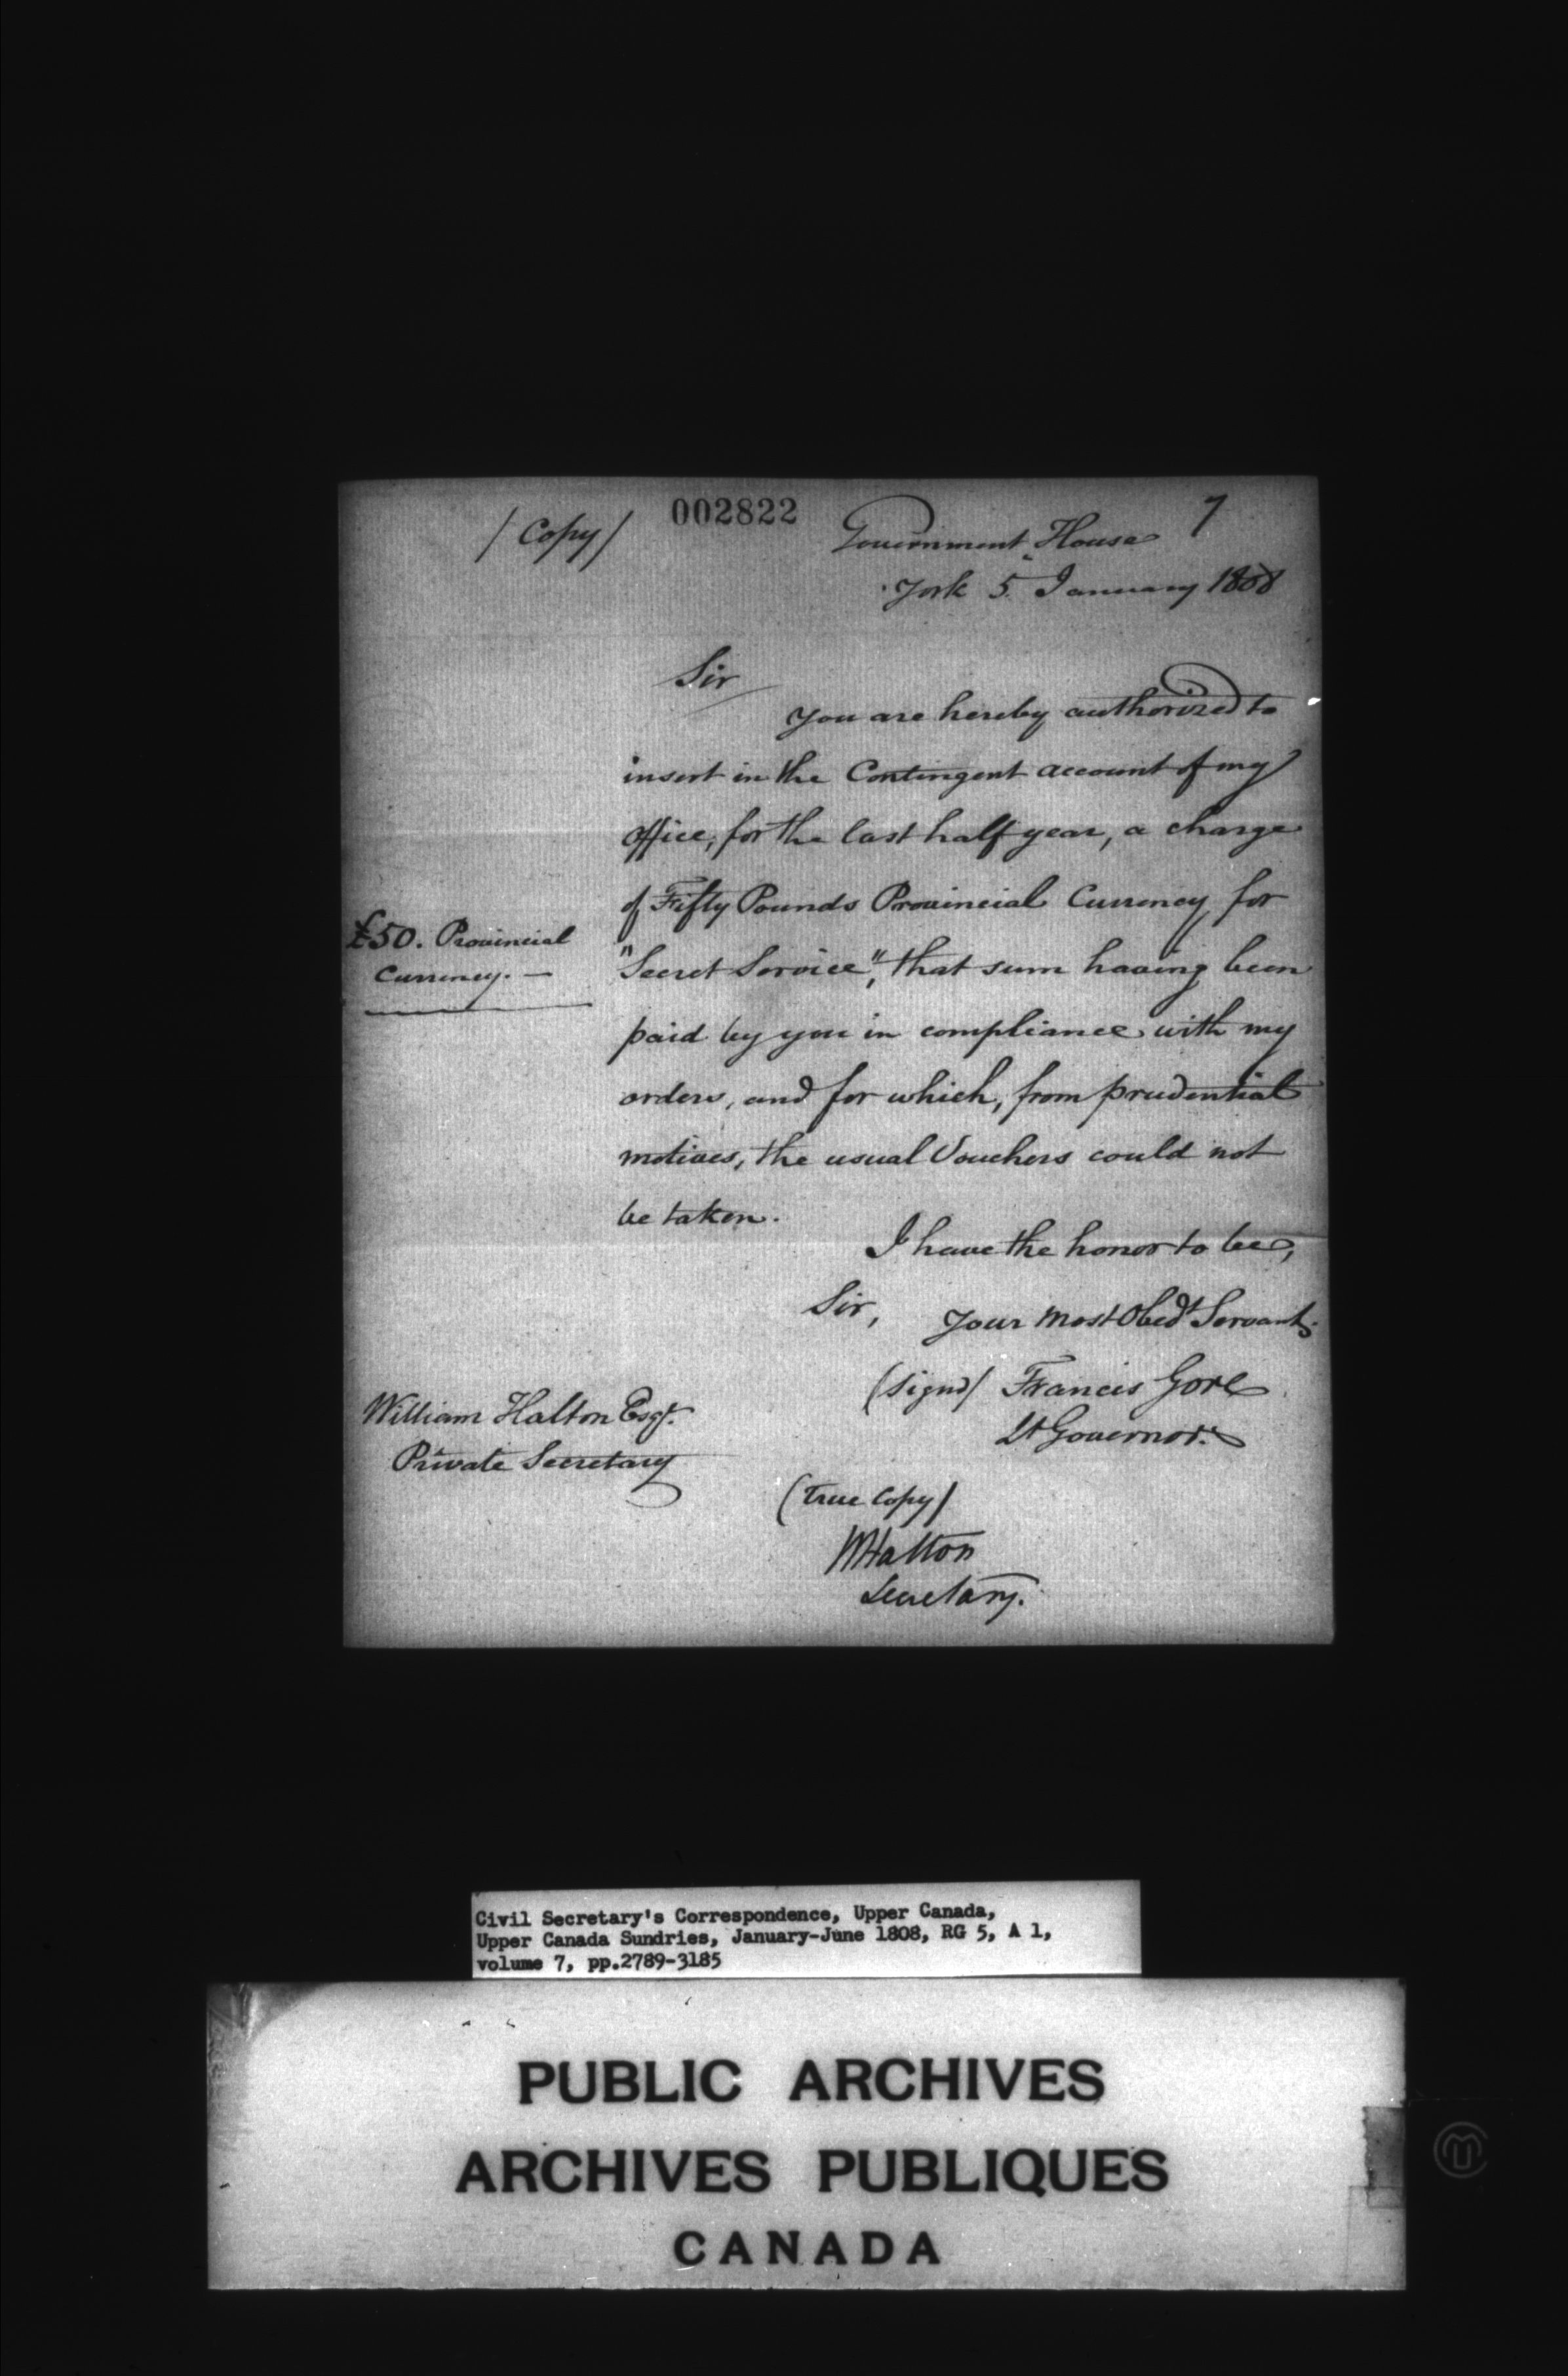 002822
7
/Copy/
Government House
York 5. January 1808
Sir
You are hereby authorized to
insert in the Contingent account of my
office, for the last half year, a charge
of Fifty Pounds Provincial Currency for
"Secret Service", that sum having been
paid by you in compliance with my
orders, and for which, from prudential
motives, the usual Vouchers could not
be taken.
£50. Provincial
Currency. —
I have the honor to be,
Sir,
Your most Obedt Servant,
(signd/ Francis Gore
Lt Governor.
William Halton Esqr.
Private Secretary
(true Copy/
WHalton
Secretary.
Civil Secretary's Correspondence, Upper Canada,
Upper Canada Sundries, January-June 1808, RG 5, A 1,
volume 7, pp.2789-3185
PUBLIC ARCHIVES
ARCHIVES PUBLIQUES
CANADA